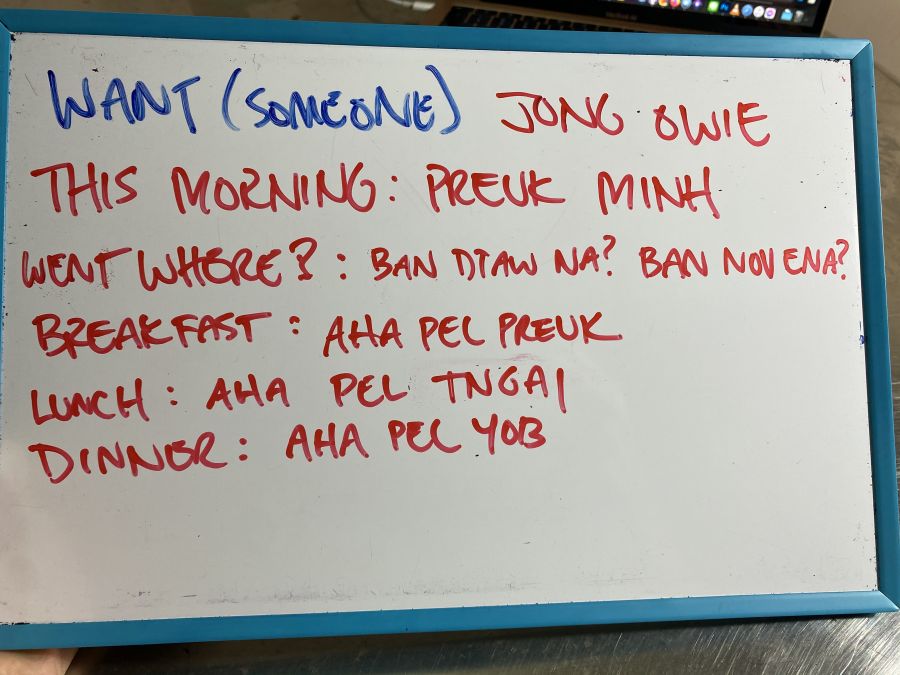 WANT (SOMEONE) JONG OWIE
THIS MORNING: PREUK MINH
WENT WHERE? : BAN DTAW NA? BAN NOV ENA?
BREAKFAST : AHA PEL PREUK
LUNCH : AHA PEL TNGAI
DINNER : AHA PEL YOB